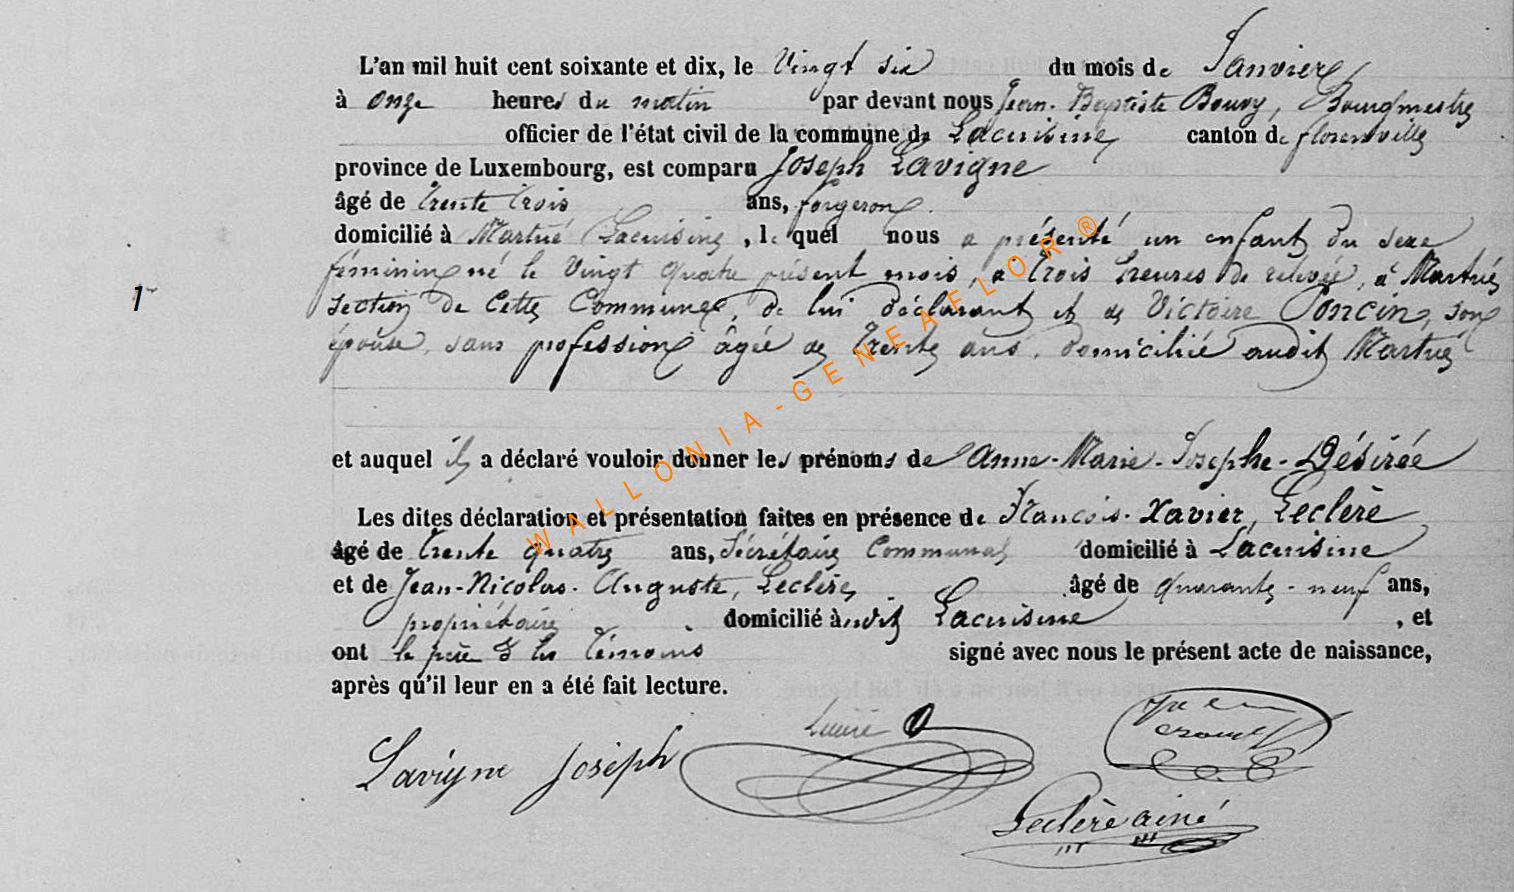 L'an mil huit cent soixante et dix, le Vingt six du mois de Janvier
à onze heures du matin par devant nous Jean-Baptiste Bouvy, Bourgmestre
officier de l'état civil de la commune de Lacuisine canton de florenville
province de Luxembourg, est comparu Joseph Lavigne
âgé de trente trois ans, forgeron
domicilié à Martué Lacuisine, lequel nous a présenté un enfant du sexe
féminin né le Vingt quatre présent mois, à trois heures de relevée, à Martué
1
section de cette Commune, de lui déclarant et de Victoire Poncin, son
épouse, sans profession âgée de trente ans, domiciliée audit Martué
et auquel il a déclaré vouloir donner les prénoms de Anne-Marie-Josephe-Désirée
Les dites déclaration et présentation faites en présence de François-Xavier, Leclère
âgé de trente quatre ans, Sécrétaire Communal domicilié à Lacuisine
et de Jean-Nicolas-Auguste, Leclère, âgé de quarante-neuf ans,
propriétaire domicilié audit Lacuisine, et
ont le père & les témoins signé avec nous le présent acte de naissance,
après qu'il leur en a été fait lecture.
Lavigne Joseph
Leclère ainé
WALLONIA-GENEAFLOR®